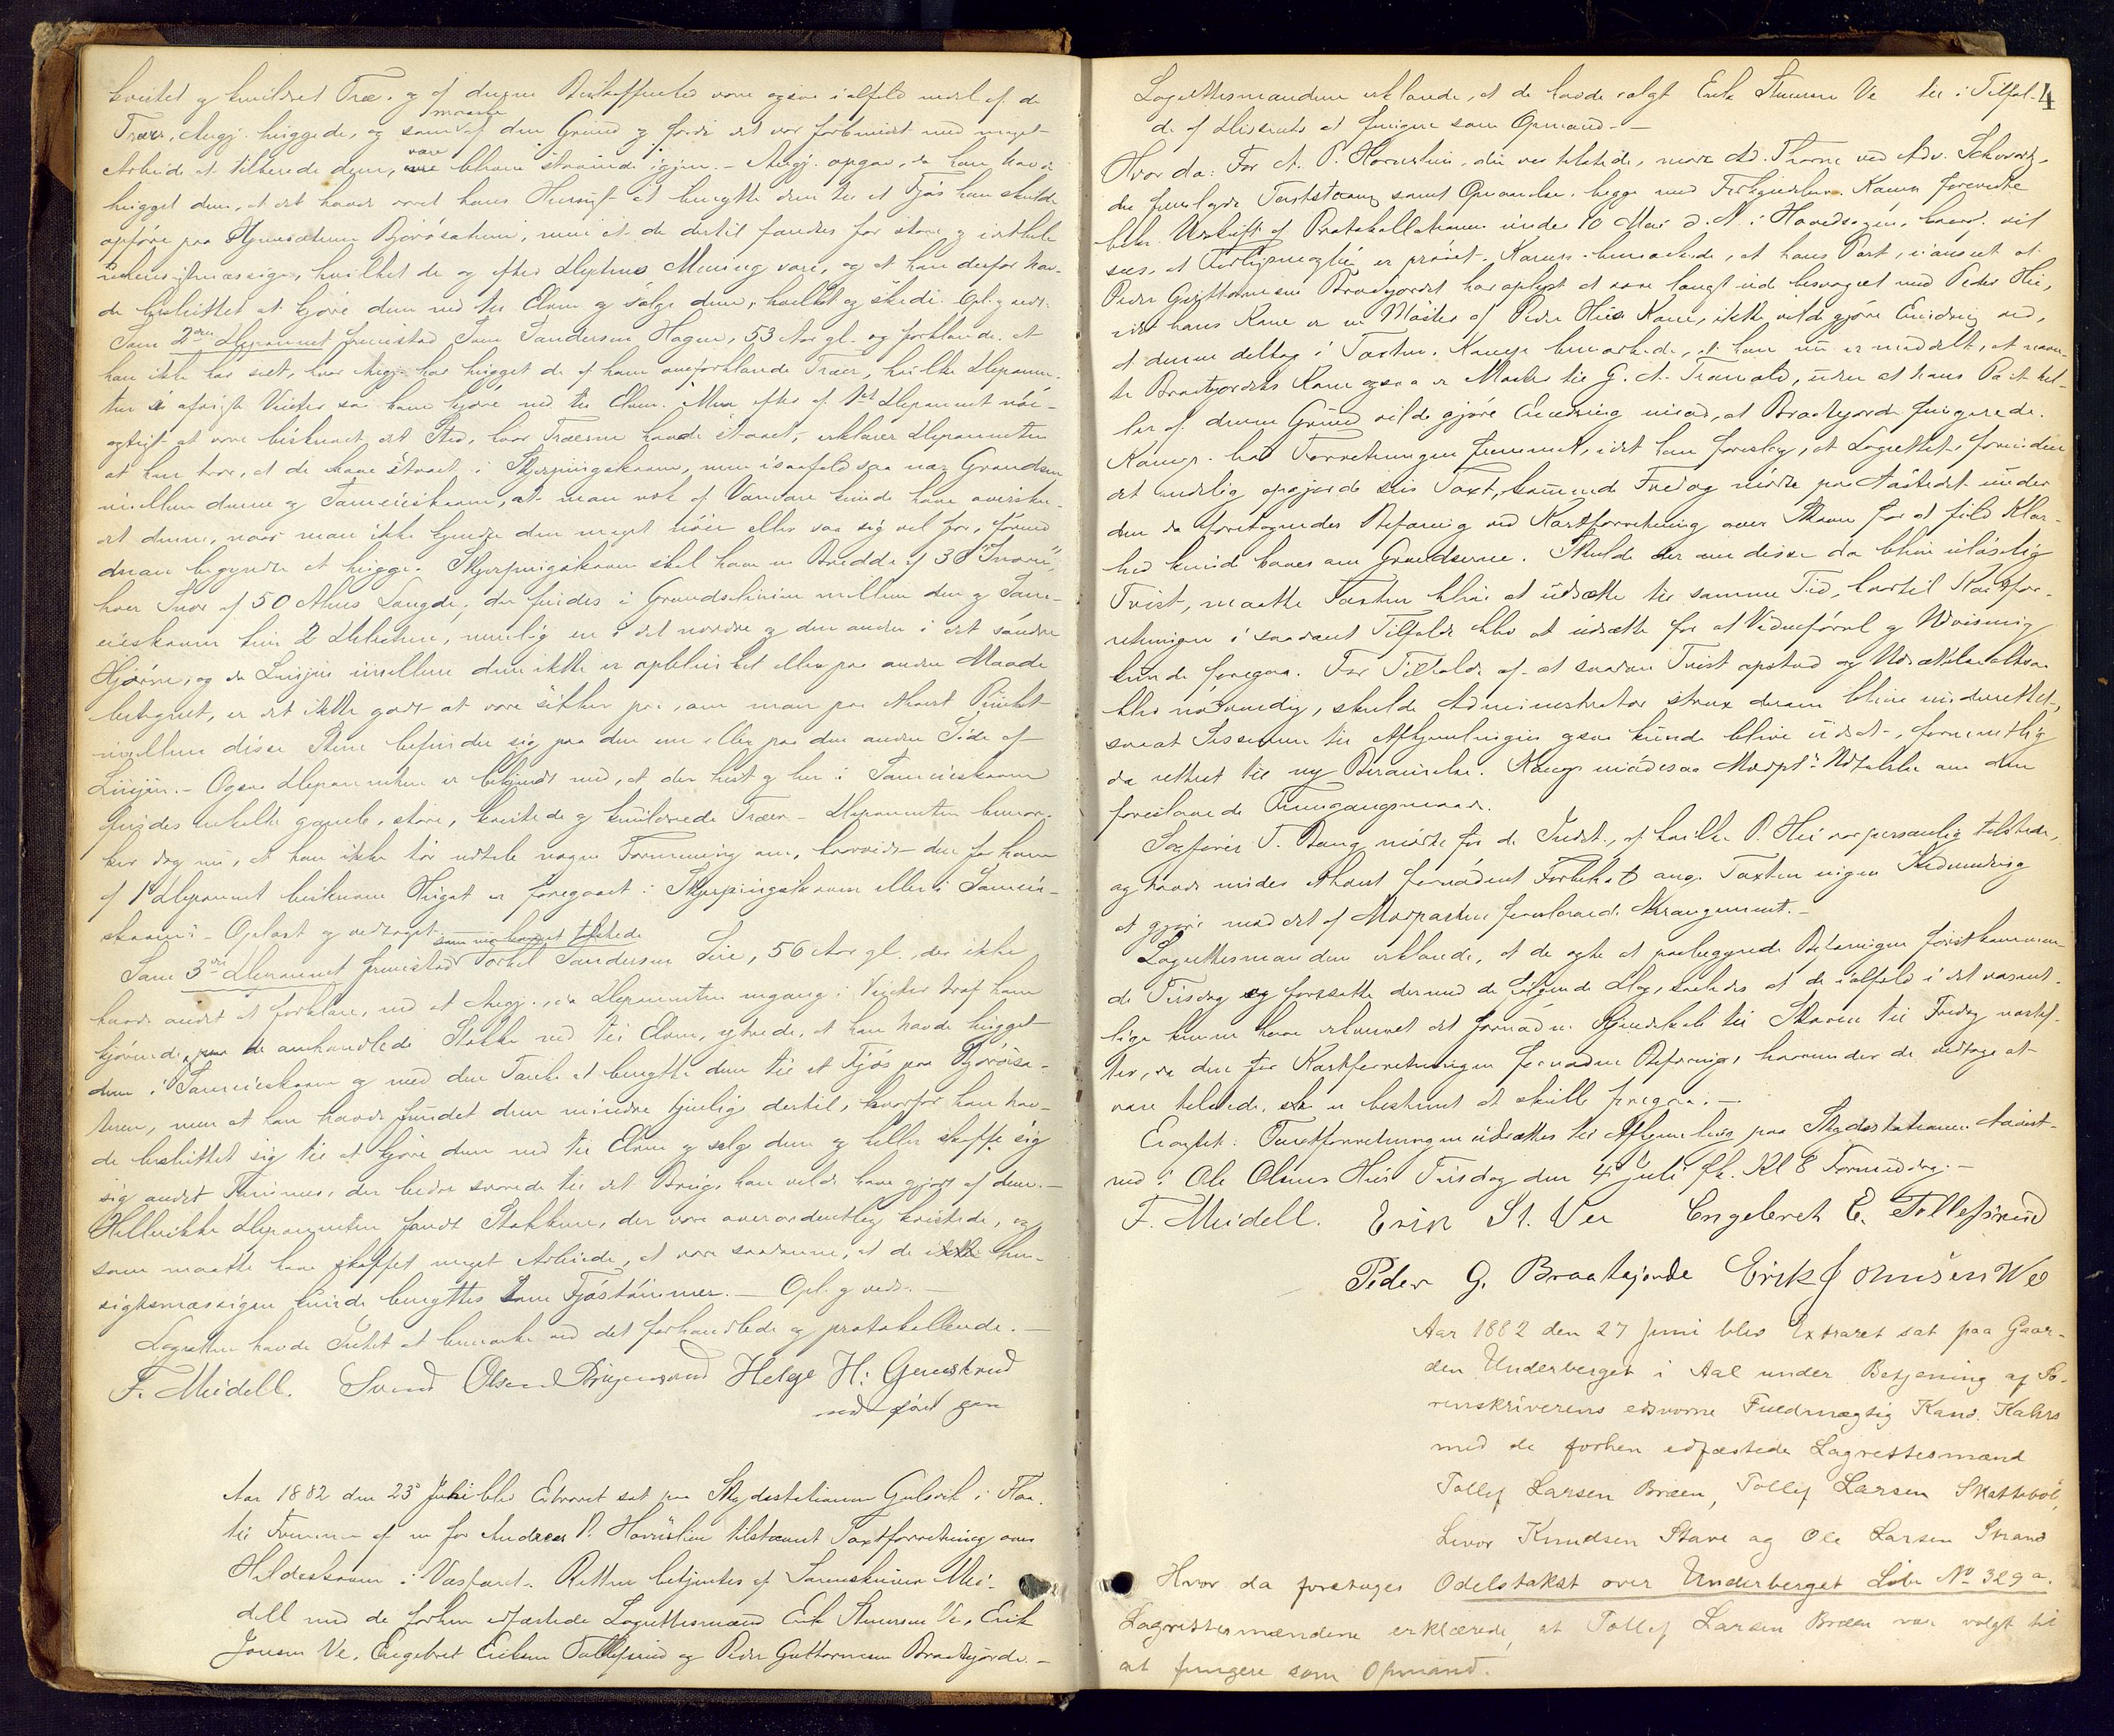 kvistet og knuldret Træ, og af denne Beskaffenhed vare ogsaa ialfald nedst af de
Træer, Angj. huggede, og som maaske af den Grund og fordi det var forbundet med meget
Arbeide at tilberede dem, vare blevne staaende igjen. - Angj. opgav, da han havde
hugget dem, at det havde været hans Hensigt at benytte dem til et Fjøs han skulde
opføre paa Bjørøsæteren, men at de dertil fandtes for store og
uhensigtsmæssige, hvilket de og efter Deptens Mening vare, og at han derfor hav-
de besluttet at kjøre dem ned til Elven og sælge dem, hvilket og skede. Opl. og vedt.
Som 2det Deponent fremstod Sander Hagen, 53 Aar gl. og forklarede, at
han ikke har seet, hvor Angj. har hugget de af ham omforklarede Træer, hvilke Deponen-
ten i afvigte Vinter saa ham kjøre ned til Elven. Men efter af 1ste Deponent nøi-
agtigt at være beskrevet det Sted, hvor Træerne havde staaet, erklærer Deponenten
at han tror, at de have staaet i Skjerpingskoven, men isaafald saa nær Grændsen
mellem denne og Sameieskoven, at man nok af Vanvare kunde have overskre-
det denne, naar man ikke kjendte den meget nøie eller saa sig vel for, forend
man begyndte at hugge. Skjerpingskoven skal have en Bredde af 30 "Snore",
hver Snor af 50 Alens Længde; der findes i Grændselinien mellem den og Sam-
eieskoven kun 2 Dele, nemlig en i det nordre og den anden i det søndre
Hjørne, og da Linjen imellem dem ikke er opblinket eller paa anden Maade
betegnet, er det ikke godt at være sikker paa, om man paa et hvert Punkt
mellem disse Stene befinder sig paa den ene eller paa den anden Side af
Linjen. - Ogsaa Deponenten er bekjendt med, at der hist og her i Sameieskoven
findes enkelte gamle, store, kvistede og knuldrede Træer - Deponenten bemær-
ker dog nu, at han ikke tør udtale nogen Formening om, hvorvidt den for ham
af 1 Deponent beskrevne Hugst er foregaaet i Skjerpingskoven eller i Sameie-
skoven. - Oplæst og vedtaget.
som var kommet tilstede
Som 3die Deponent fremstod Torkel Sandersen Sire, 56 Aar gl., der ikke
havde andet at forklare, end at Angj., da Deponenten engang i Vinter traf ham
kjørende paa de omhandlede Stokke ned til Elven, ytrede, at han havde hugget
dem i Sameieskoven og med den Tanke at benytte dem til et Fjøs paa Bjørøsæ-
teren, men at han havde fundet dem mindre tjenlige dertil, hvorfor han hav-
de besluttet sig til at kjøre dem ned til Elven og sælge dem og heller skaffe sig
sig andet Tømmer, der bedre svarede til det Brug, han vilde have gjort af dem. -
Hellerikke Deponenten fandt Stokkene, der vare overordentlig kvistede, og
som maatte have skaffet meget Arbeide, at være saadanne, at de ikke hen-
sigtsmæssigen kunde benyttes som Fjøstømmer. - Opl. og vedt. -
Lagretten havde Intet at bemærke ved det forhandlede og protokollerede. -
F. Meidell. Svend Olsen Helge H: Gjeiterud
med ført pen
Aar 1882 den 23de Juni blev Extraret sat paa Skydsstationen Gulsvik i Flaa
til Fremme af en for Andreas P. Hovrslien tilstævnt Taxtforretning over
Hildeskoven i Vasfaret. Retten betjentes af Sorenskriver Mei-
dell med de forhen edfæstede Lagrettesmænd Erik Steensen Ve, Erik
Jonsen Ve, Engebret Eriksen Tollefsrud og Peder Guttormsen Braatejorde. -
4
Lagrettesmændene erklærede, at de havde valgt Erik Steensen Ve til i Tilfæl-
de af Dissents at fungere som Opmand. -
Hvor da: For A. P. Hovrslien, der var tilstede, mødte Ad. Thorne ved Adv. Schwartz,
der fremlagde Taxtstævning samt Opnævnelse, begge med Forkyndelse. Kamp foreviste
bekr. Udskrift af Protokollationen under 10 Mai d. A. i Hovedsagen, hvoraf vil
sees, at Forligsmægling er prøvet. Kamp bemærkede, at hans Part, uanseet at
Peder Guttormsen Braatejordet har oplyst at være langt ude besvogret med Peder Hei,
idet hans Kone er en Moster af Peder Heis Kone, ikke vilde gjøre Indvending mod,
at denne deltog i Taxten. Kamp bemærkede, at han nu er meddelt, at nævn-
te Braatejordets Kone ogsaa er Moster til G. A. Tranvald, uden at hans Part hel-
ler af denne Grund vilde gjøre Indvending imod, at Braatejorde fungerede.
Kamp bad Forretningen fremmet, idet han foreslog, at Lagrettet, forinden
det endelig opgjorde sin Taxt, førend Fredag mødte paa Aastedet under
den da foretagendes Befaring ved Kartforretning over Skoven for at fuld Klar-
hed kunde haves om Grændserne. Skulde der om disse da blive uløselig
Tvist, maatte Taxten blive at udsætte til samme Tid, hvortil Kartfor-
retningen i saadant Tilfælde blev at udsætte for at Vidneførsel og Udvisning
kunde foregaa. For Tilfælde af at saadan Tvist opstod og Udsættelse altsaa
blev nødvendig, skulde Administrator strax derom blive underrettet,
saaat Sessionen til Afhjemlingen ogsaa kunde blive udsat, fornemmelig
da rettet til ny Berammelse. Kamp imødesaa Modpts Udtalelse om den
foreslaaede Fremgangsmaade.
Sagfører T. Bang mødte for de Indst., af hvilke P. Hei var personlig tilstede,
og havde under ethvert fornødent Forbehold ang. Taxten ingen Indvending
at gjøre mod det af Modparten foreslaaede Arrangement. -
Lagrettesmændene erklærede, at de agte at paabegynde Befaringen førstkommen-
de Tirsdag og fortsætte dermed de følgende Dage, saaledes at de ialfald i det væsent-
lige kunne have erhvervet det fornødne Kjendskab til Skoven til Fredag næstef-
ter, da den for Kartforretningen fornødne Befaring, hvorunder de vedtoge at
være tilstede, er bestemt at skulle foregaa. -
Eragtet: Taxtforretningen udsættes til Afhjemling paa Skydsstationen
ved Ole Olsens Hus Tirsdag den 4 Juli fk. Kl 8 Formiddag. -
F. Meidell. Erik St. Vee Engebret E. Tollefsrud
Peder G. Braatejorde Erik Jonnsen We
Aar 1882 den 27 Juni blev Extraret sat paa Gaar-
den Underberget i Aal under Betjening af So-
renskriverens edsvorne Fuldmægtig Kand. Kahrs
med de forhen edfæstede Lagrettesmænd
Tollef Larsen Bråen, Tollef Larsen Skattebøl,
Levor Knudsen Stave og Ole Larsen Strand
Hvor da foretoges Odelstakst over Underberget Løbe No 329a.
Lagrettesmændene erklærede, at Tollef Larsen Bråen var valgt til
at fungere som Opmand.